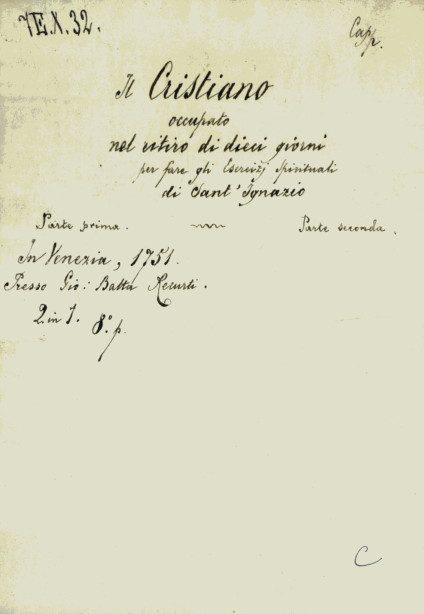 7E.X.32.
Capp.
Il Cristiano
occupato
nel ritiro di dieci giorni
per fare gli Esercizj Spirituali
di Sant' Ignazio
Parte prima. Parte seconda.
In Venezia, 1751.
Presso Gio: Batta Recurti.
2 in 1. 8.° p.
C